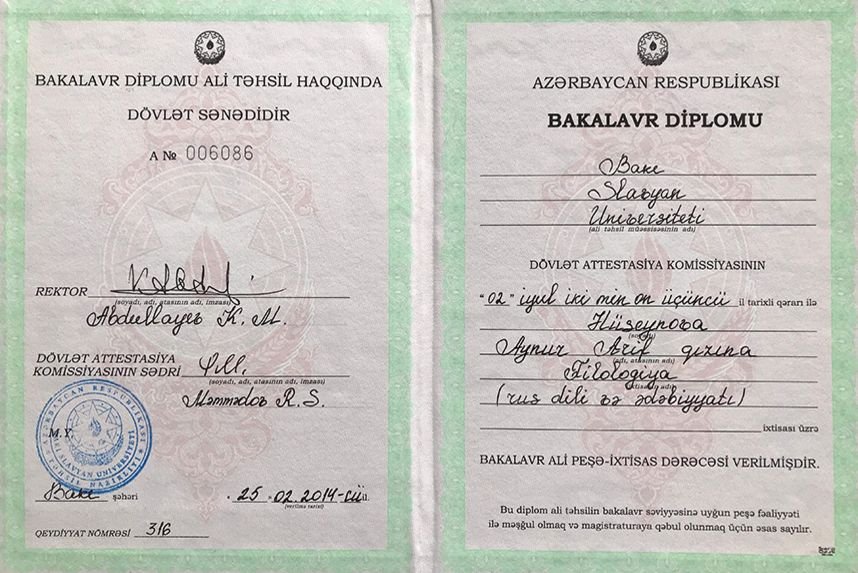 BAKALAVR DİPLOMU ALİ TƏHSİL HAQQINDA
DÖVLƏT SƏNƏDİDİR
A № 006086
REKTOR
(soyadı, adı, atasının adı, imzası)
Abdullayev K. M.
DÖVLƏT ATTESTASİYA
KOMİSSİYASININ SƏDRİ
(soyadı, adı, atasının adı, imzası)
Məmmədov R. S.
AZƏRBAYCAN RESPUBLİKASI
TƏHSİL NAZİRLİYİ
SLAVYAN UNİVERSİTETİ
M.Y.
Bakı şəhəri
"25" 02.2014-cü il.
(verilmə tarixi)
QEYDİYYAT NÖMRƏSİ 316
AZƏRBAYCAN RESPUBLİKASI
BAKALAVR DİPLOMU
Bakı
Slavyan
Universiteti
(ali təhsil müəssisəsinin adı)
DÖVLƏT ATTESTASİYA KOMİSSİYASININ
"02" iyul iki min on üçüncü il tarixli qərarı ilə
Hüseynova
(soyadı)
Aynur Arif qızına
(adı, atasının adı)
Filologiya
(ixtisasın adı)
(rus dili və ədəbiyyatı)
ixtisası üzrə
BAKALAVR ALİ PEŞƏ-İXTİSAS DƏRƏCƏSİ VERİLMİŞDİR.
Bu diplom ali təhsilin bakalavr səviyyəsinə uyğun peşə fəaliyyəti
ilə məşğul olmaq və magistraturaya qəbul olunmaq üçün əsas sayılır.